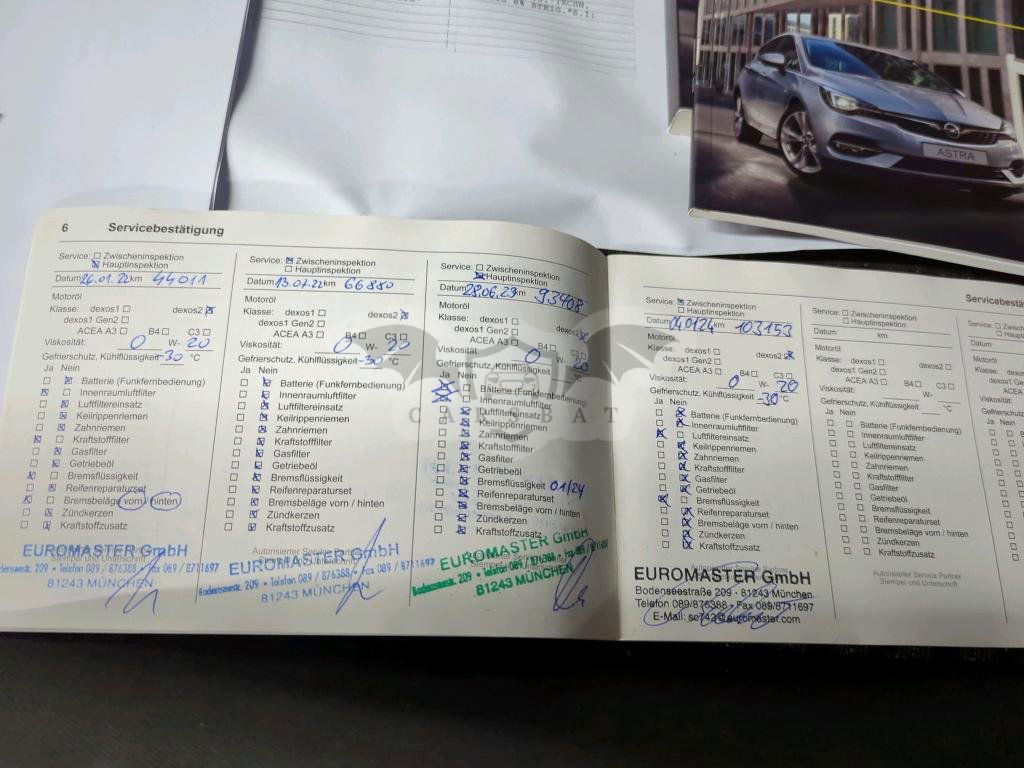 6 Servicebestätigung
Service: Zwischeninspektion
Hauptinspektion
Datum 26.01.22 km 44011
Motoröl
Klasse: dexos1 dexos2
dexos1 Gen2
ACEA A3 B4 C3
Viskosität: 0 W- 20
Gefrierschutz, Kühlflüssigkeit -30 °C
Ja Nein
Batterie (Funkfernbedienung)
Innenraumluftfilter
Luftfiltereinsatz
Keilrippenriemen
Zahnriemen
Kraftstofffilter
Gasfilter
Getriebeöl
Bremsflüssigkeit
Reifenreparaturset
Bremsbeläge vorn / hinten
Zündkerzen
Kraftstoffzusatz
EUROMASTER GmbH
209 • Telefon 089 / 876388 • Fax 089 / 8711697
81243 MÜNCHEN
Service: Zwischeninspektion
Hauptinspektion
Datum 13.07.22 km 66880
Motoröl
Klasse: dexos1 dexos2
dexos1 Gen2
ACEA A3 B4 C3
Viskosität: 0 W-
Gefrierschutz, Kühlflüssigkeit -30 °C
Ja Nein
Batterie (Funkfernbedienung)
Innenraumluftfilter
Luftfiltereinsatz
Keilrippenriemen
Zahnriemen
Kraftstofffilter
Gasfilter
Getriebeöl
Bremsflüssigkeit
Reifenreparaturset
Bremsbeläge vorn / hinten
Zündkerzen
Kraftstoffzusatz
Autorisierter Service
EUROMASTER GmbH
209 • Telefon 089 / 876388 • Fax 089 / 8711697
81243 MÜNCHEN
Service: Zwischeninspektion
Hauptinspektion
Datum 28.06.23 km 93408
Motoröl
Klasse: dexos1 dexos2
dexos1 Gen2
ACEA A3 B4 C3
Viskosität: 0 W- 20
Gefrierschutz, Kühlflüssigkeit °C
Ja Nein
Batterie (Funkfernbedienung)
Innenraumluftfilter
Luftfiltereinsatz
Keilrippenriemen
Zahnriemen
Kraftstofffilter
Gasfilter
Getriebeöl
Bremsflüssigkeit 01/24
Reifenreparaturset
Bremsbeläge vorn / hinten
Zündkerzen
Kraftstoffzusatz
EUROMASTER GmbH
209 • Telefon 089 / 876388 • Fax 089 / 8711697
81243 MÜNCHEN
Service: Zwischeninspektion
Hauptinspektion
Datum 040124 km 103153
Motoröl
Klasse: dexos1 dexos2
dexos1 Gen2
ACEA A3 B4 C3
Viskosität: 0 W- 20
Gefrierschutz, Kühlflüssigkeit -30 °C
Ja Nein
Batterie (Funkfernbedienung)
Innenraumluftfilter
Luftfiltereinsatz
Keilrippenriemen
Zahnriemen
Kraftstofffilter
Gasfilter
Getriebeöl
Bremsflüssigkeit
Reifenreparaturset
Bremsbeläge vorn / hinten
Zündkerzen
Kraftstoffzusatz
EUROMASTER GmbH
Bodenseestraße 209 · 81243 München
Telefon 089/876388 • Fax 089/8711697
E-Mail: sc742@euromaster.com
Service: Zwischeninspektion
Hauptinspektion
Datum km
Motoröl
Klasse: dexos1 dexos2
dexos1 Gen2
ACEA A3 B4 C3
Viskosität: W-
Gefrierschutz, Kühlflüssigkeit °C
Ja Nein
Batterie (Funkfernbedienung)
Innenraumluftfilter
Luftfiltereinsatz
Keilrippenriemen
Zahnriemen
Kraftstofffilter
Gasfilter
Getriebeöl
Bremsflüssigkeit
Reifenreparaturset
Bremsbeläge vorn / hinten
Zündkerzen
Kraftstoffzusatz
Autorisierter Service Partner
Stempel und Unterschrift
Service:
Datum
Motoröl
Klasse:
Viskosität:
Ja Nein
ASTRA
CAR BAT